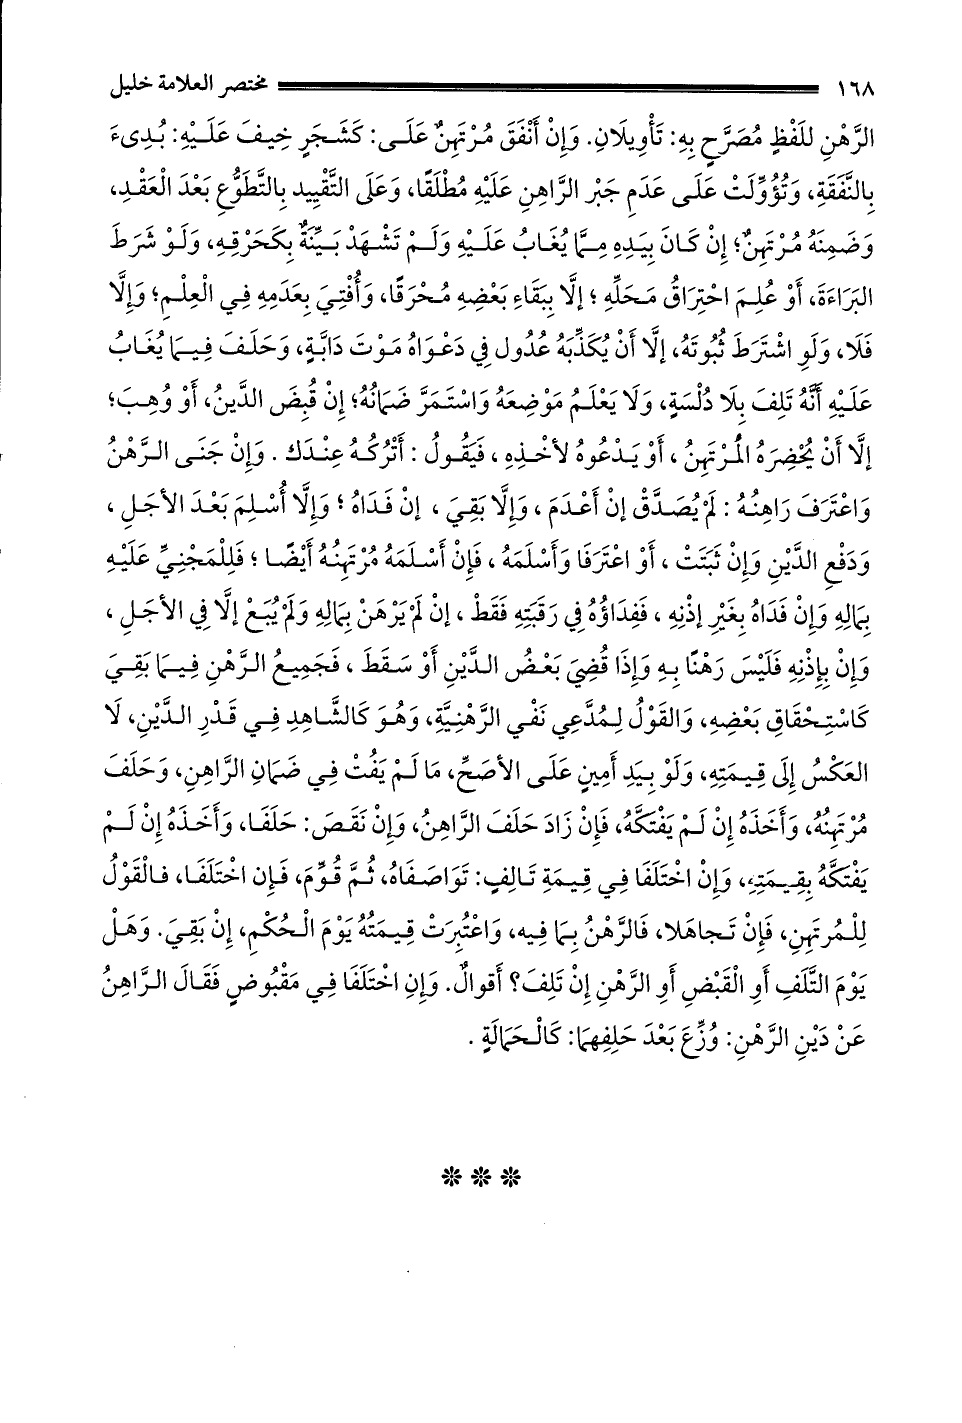 ١٦٨ مختصر العلامة خليل
الرَّهْنِ لِلَفْظٍ مُصَرَّحٍ بِهِ: تَأْوِيلَانِ. وَإِنْ أَنْفَقَ مُرْتَهِنٌ عَلَى: كَشَجَرٍ خِيفَ عَلَيْهِ: بُدِىءَ
بِالنَّفَقَةِ، وَتُؤُوِّلَتْ عَلَى عَدَمِ جَبْرِ الرَّاهِنِ عَلَيْهِ مُطْلَقًا، وَعَلَى التَّقْيِيدِ بِالتَّطَوُّعِ بَعْدَ الْعَقْدِ،
وَضَمِنَهُ مُرْتَهِنٌ؛ إِنْ كَانَ بِيَدِهِ مِمَّا يُغَابُ عَلَيْهِ وَلَمْ تَشْهَدْ بَيِّنَةٌ بِكَحَرْقِهِ، وَلَوْ شَرَطَ
البَرَاءَةَ، أَوْ عُلِمَ احْتِرَاقُ مَحَلِّهِ ؛ إلَّا بِبَقَاءِ بَعْضِهِ مُحْرَقًا، وَأُفْتِيَ بِعَدَمِهِ فِي الْعِلْمِ؛ وَإِلَّا
فَلَا، وَلَوِ اشْتَرَطَ ثُبُوتَهُ، إلَّا أَنْ يُكَذِّبَهُ عُدُول فِي دَعْوَاهُ مَوْتَ دَابَّةٍ، وَحَلَفَ فِيمَا يُغَابُ
عَلَيْهِ أَنَّهُ تَلِفَ بِلَا دُلْسَةٍ، وَلَا يَعْلَمُ مَوْضِعَهُ وَاسْتَمَرَّ ضَمَانُهُ؛ إنْ قُبِضَ الدَّينُ، أَوْ وُهِبَ؛
إلَّا أَنْ يُحْضِرَهُ الْمُرْتَهِنُ ، أَوْ يَدْعُوهُ لأَخْذِهِ ، فَيَقُولُ : أَتْرُكُهُ عِنْدَكَ . وَإِنْ جَنَى الرَّهْنُ
وَاعْتَرَفَ رَاهِنُهُ : لَمْ يُصَدَّقْ إنْ أَعْدَمَ ، وَإِلَّا بَقِيَ ، إنْ فَدَاهُ ؛ وَإلَّا أُسْلِمَ بَعْدَ الأَجَلِ ،
وَدَفْعِ الدَّيْنِ وَإِنْ ثَبَتَتْ ، أَوْ اعْتَرَفَا وَأَسْلَمَهُ ، فَإِنْ أَسْلَمَهُ مُرْتَهِنُهُ أَيْضًا ؛ فَلِلْمَجْنِيِّ عَلَيْهِ
بِمَالِهِ وَإِنْ فَدَاهُ بِغَيْرِ إذْنِهِ ، فَفِدَاؤُهُ فِي رَقَبَتِهِ فَقَطْ ، إنْ لَمْ يَرْهَنْ بِمَالِهِ وَلَمْ يُبَعْ إلَّا فِي الأَجَلِ ،
وَإِنْ بِإِذْنِهِ فَلَيْسَ رَهْنًا بِهِ وَإِذَا قُضِيَ بَعْضُ الدَّيْنِ أَوْ سَقَطَ ، فَجَمِيعُ الرَّهْنِ فِيمَا بَقِيَ
كَاسْتِحْقَاقِ بَعْضِهِ، وَالقَوْلُ لِمُدَّعِي نَفْيِ الرَّهْنِيَّةِ، وَهُوَ كَالشَّاهِدِ فِي قَدْرِ الدَّيْنِ، لَا
العَكْسُ إِلَى قِيمَتِهِ، وَلَوْ بِيَدِ أَمِينٍ عَلَى الأَصَحِّ، مَا لَمْ يَفُتْ فِي ضَمَانِ الرَّاهِنِ، وَحَلَفَ
مُرْتَهِنُهُ، وَأَخَذَهُ إِنْ لَمْ يَفْتَكَّهُ، فَإِنْ زَادَ حَلَفَ الرَّاهِنُ، وَإِنْ نَقَصَ: حَلَفَا، وَأَخَذَهُ إِنْ لَمْ
يَفْتَكَّهُ بِقِيمَتِهِ، وَإِنْ اخْتَلَفَا فِي قِيمَةِ تَالِفٍ: تَوَاصَفَاهُ، ثُمَّ قُوِّمَ، فَإِن اخْتَلَفَا، فَالْقَوْلُ
لِلْمُرتَهِنِ، فَإِنْ تَجاهَلا، فَالرَّهْنُ بِمَا فِيه، وَاعْتُبِرَتْ قِيمَتُهُ يَوْمَ الْحُكْمِ، إِنْ بَقِيَ. وَهَلْ
يَوْمَ التَّلَفِ أَوِ الْقَبْضِ أَوِ الرَّهْنِ إِنْ تَلِفَ؟ أَقوالٌ. وَإِنِ اخْتَلَفَا فِي مَقْبُوضٍ فَقَالَ الرَّاهِنُ
عَنْ دَيْنِ الرَّهْنِ: وُزِّعَ بَعْدَ حَلِفِهِمَا: كَالْحَمَالَةِ .